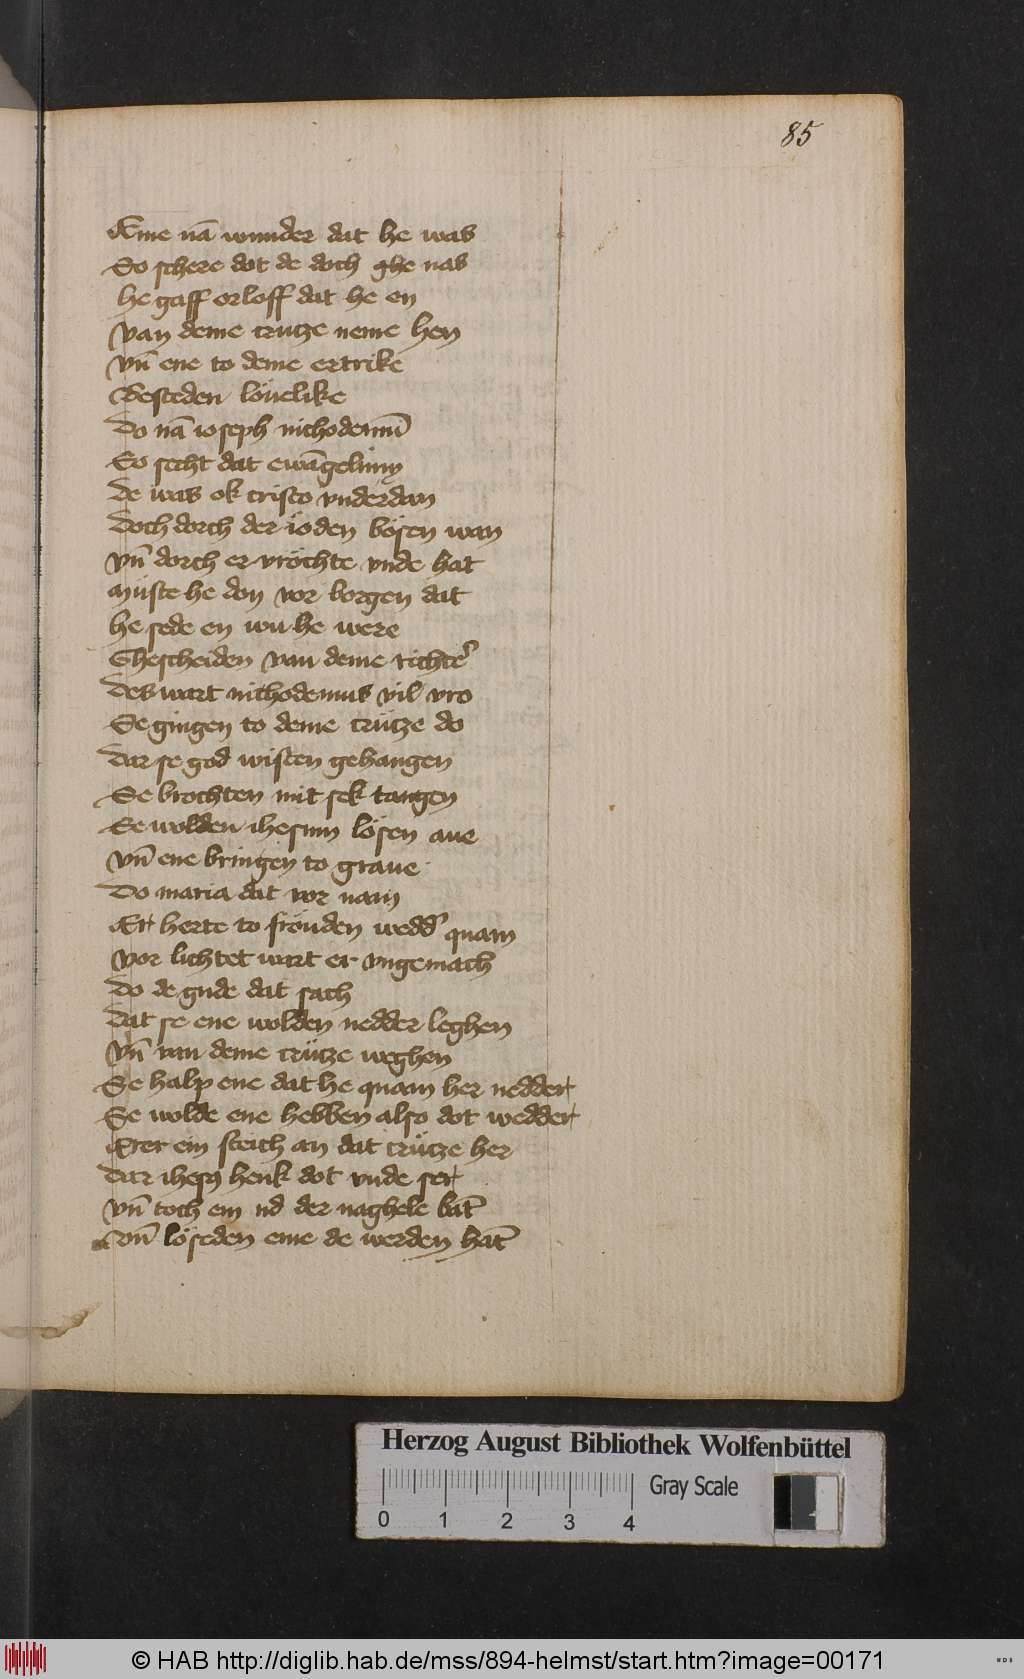 85
Eme nā wunder dat he was
So schere dot de doch ghe nas
he gaff orloff dat he en
van deme crutze neme hen
vn̄ ene to deme ertrike
Besteden löuelike
Do nā ioseph nichodemū
So secht dat ewāgelium
de was ok cristo vnderdan
Doch dorch der ioden bösen wan
vn̄ dorch er vröchte vnde hat
müste he don vor borgen dat
he sede en wu he were
Ghescheiden van deme richte᷑
des wart nichodemus vil vro
Se gingen to deme crütze do
Dar se god wisten gehangen
Se brochten mit sek tangen
Se wolden ihesum lösen aue
vn̄ ene bringen to graue
Do maria dat vor nam
Er herte to fröuden wedd᷑ quam
vor lichtet wart er vngemach
Do de gude dat sach
Dat se ene wolden nedder leghen
vn̄ van deme crütze weghen
Se halp ene dat he quam her nedder
Se wolde ene hebben also dot wedder
Erer ein steich an dat crütze her
Dar ihesus henk dot vnde ser
vn̄ toch em ud der naghele bāt
vn̄ löseden eme de werden hāt
Herzog August Bibliothek Wolfenbüttel
Gray Scale
0 1 2 3 4
© HAB http://diglib.hab.de/mss/894-helmst/start.htm?image=00171